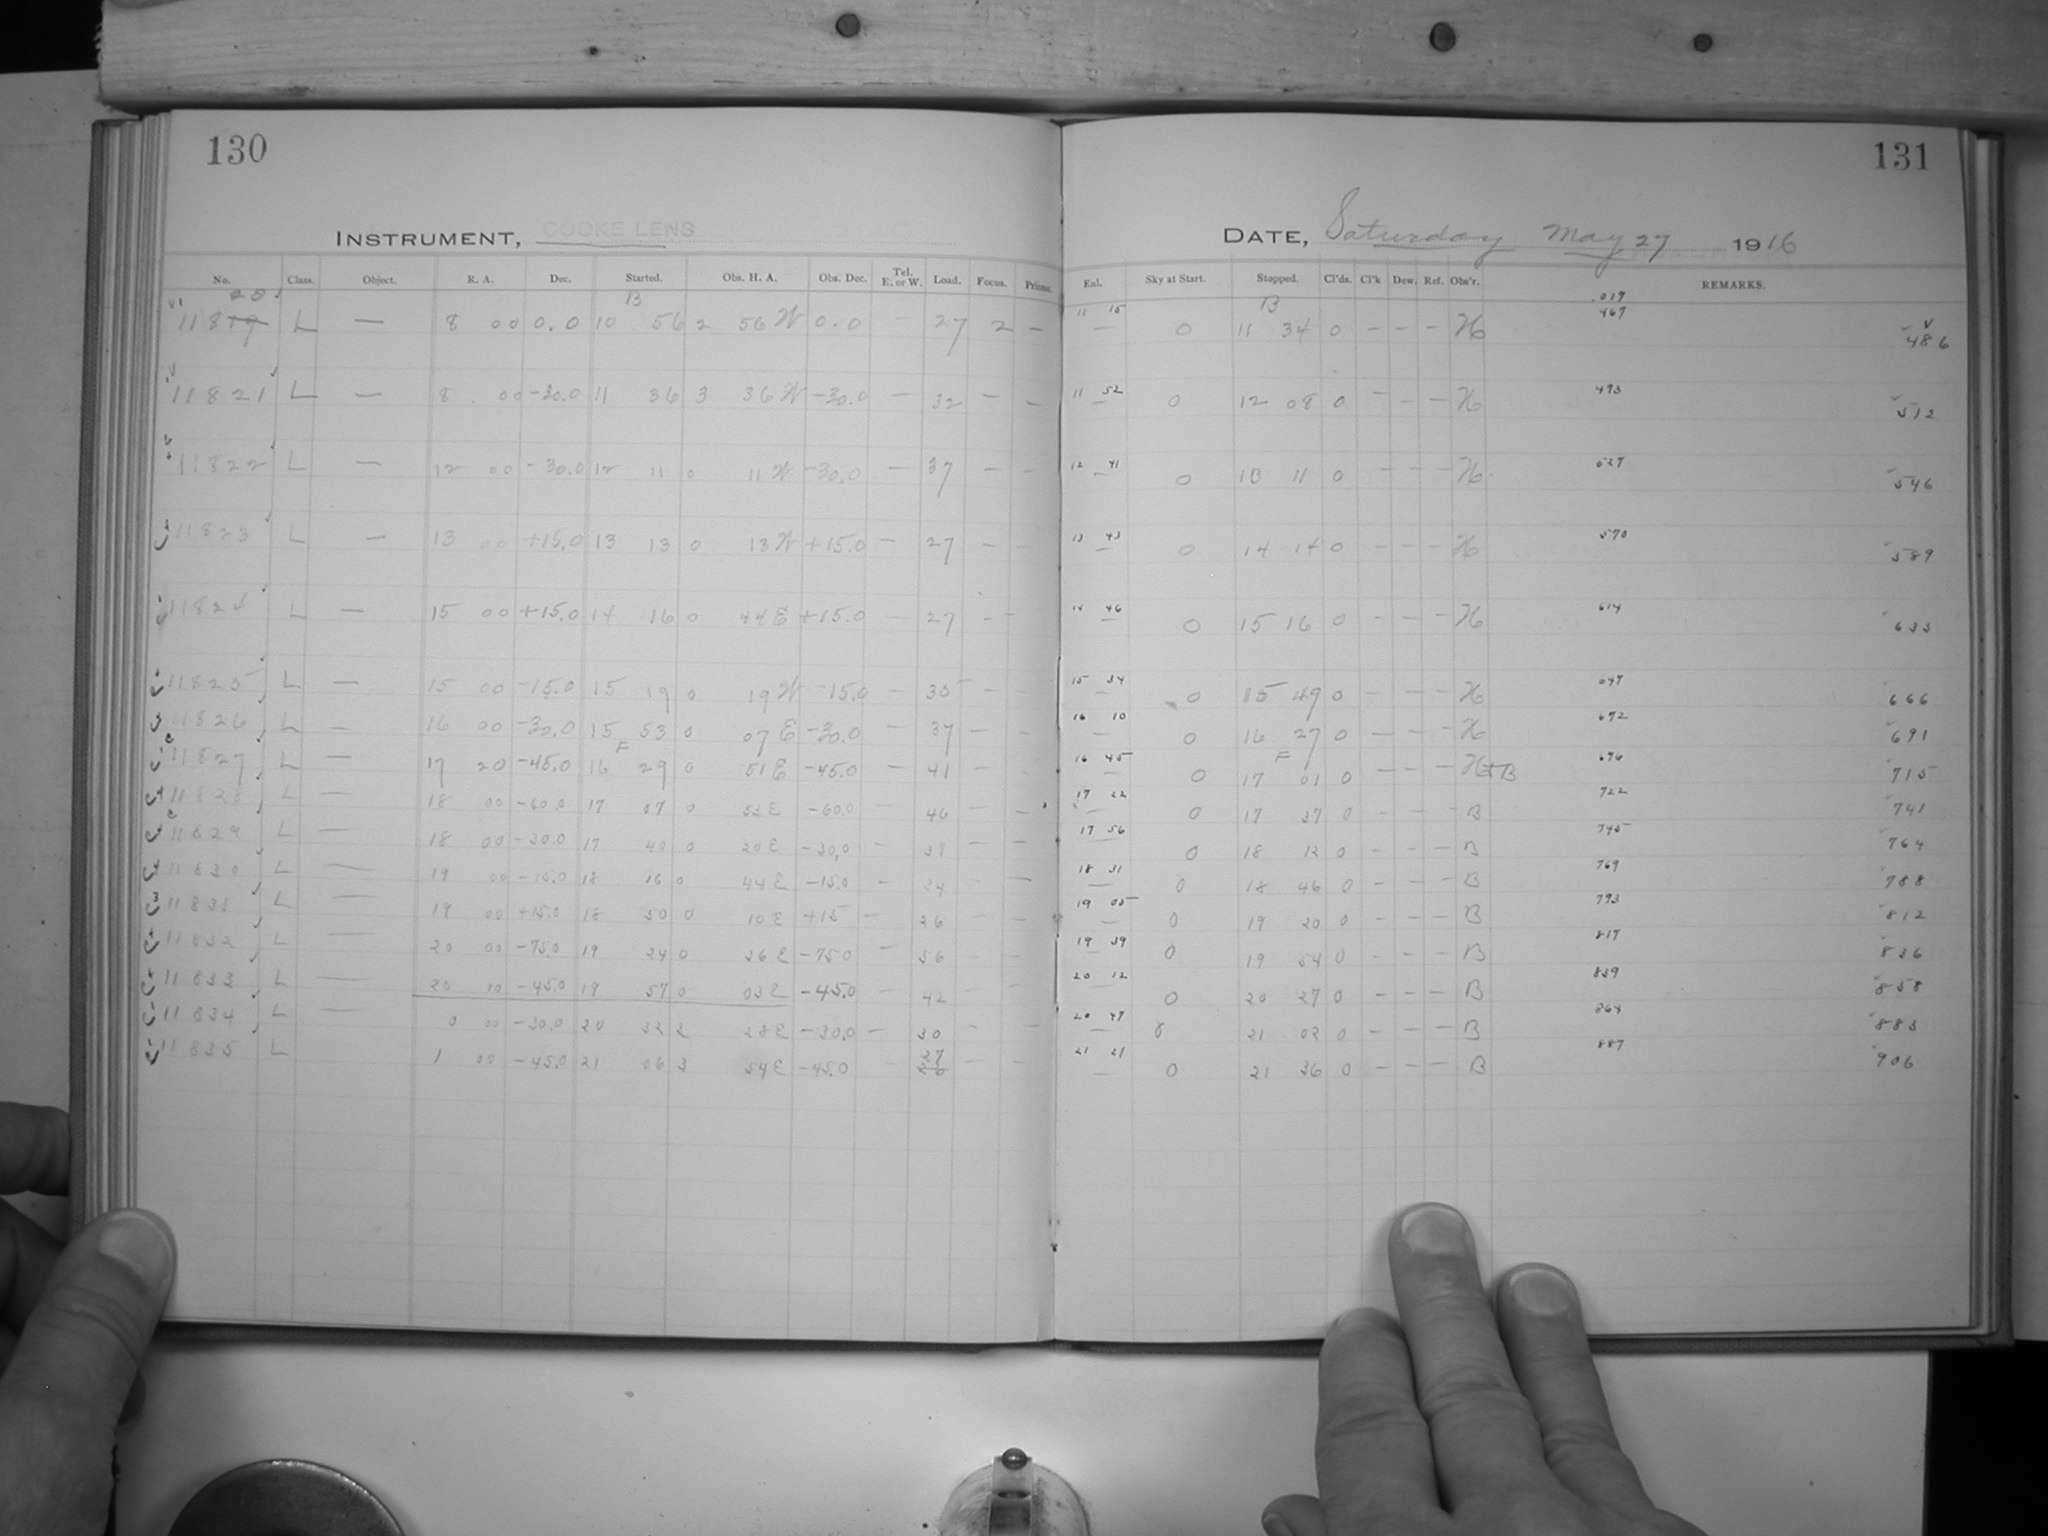 130
131
INSTRUMENT, COOKE LENS
DATE, Saturday May 27 1916
No. Class. Object. R. A. Dec. Started. Obs. H. A. Obs. Dec. Tel. E. or W. Load. Focus. Prisms.
Eal. Sky at Start. Stopped. Cl'ds. Cl'k Dew. Ref. Obs'r. REMARKS.
20 B B .019
11819 L — 8 00 0.0 10 56 2 56 W 0.0 — 27 2 — 11 15 — 0 11 34 0 — — — H 467 486
11821 L — 8 00 -30.0 11 36 3 36 W -30.0 — 32 — — 11 52 — 0 12 08 0 — — — H 493 512
11822 L — 12 00 -30.0 12 11 0 11 W -30.0 — 37 — — 12 41 — 0 13 11 0 — — — H 527 546
11823 L — 13 00 +15.0 13 13 0 13 W +15.0 — 27 — — 13 43 — 0 14 14 0 — — — H 570 589
11824 L — 15 00 +15.0 14 16 0 44 E +15.0 — 27 — — 14 46 — 0 15 16 0 — — — H 614 633
11825 L — 15 00 -15.0 15 19 0 19 W -15.0 — 35 — — 15 34 — 0 15 49 0 — — — H 647 666
11826 L — 16 00 -30.0 15 53 0 07 E -30.0 — 37 — — 16 10 — 0 16 27 0 — — — H 672 691
F F
11827 L — 17 20 -45.0 16 29 0 51 E -45.0 — 41 — — 16 45 — 0 17 01 0 — — — H+B 696 715
11828 L — 18 00 -60.0 17 07 0 53 E -60.0 46 — — 17 22 — 0 17 37 0 — — — B 722 741
11829 L — 18 00 -30.0 17 40 0 20 E -30.0 — 37 — — 17 56 — 0 18 12 0 — — — B 745 764
11830 L — 19 00 -15.0 18 16 0 44 E -15.0 — 34 — — 18 31 — 0 18 46 0 — — — B 769 788
11831 L — 19 00 +15.0 18 50 0 10 E +15 — 26 — — 19 05 — 0 19 20 0 — — — B 793 812
11832 L — 20 00 -75.0 19 24 0 36 E -75.0 — 56 — — 19 39 — 0 19 54 0 — — — B 817 836
11833 L — 20 00 -45.0 19 57 0 03 E -45.0 — 42 — — 20 12 — 0 20 27 0 — — — B 839 858
11834 L — 0 00 -30.0 20 32 2 28 E -30.0 — 30 — — 20 47 — 0 21 02 0 — — — B 864 883
11835 L 1 00 -45.0 21 06 3 54 E -45.0 — 37 — — 21 21 — 0 21 36 0 — — — B 887 906